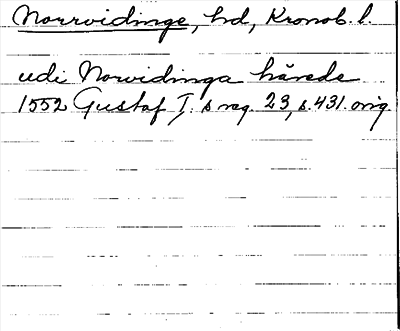 Norrvidinge, hd, Kronob. l.
udi Norvidinga härede
1552 Gustaf I:s reg. 23, s. 431. orig.